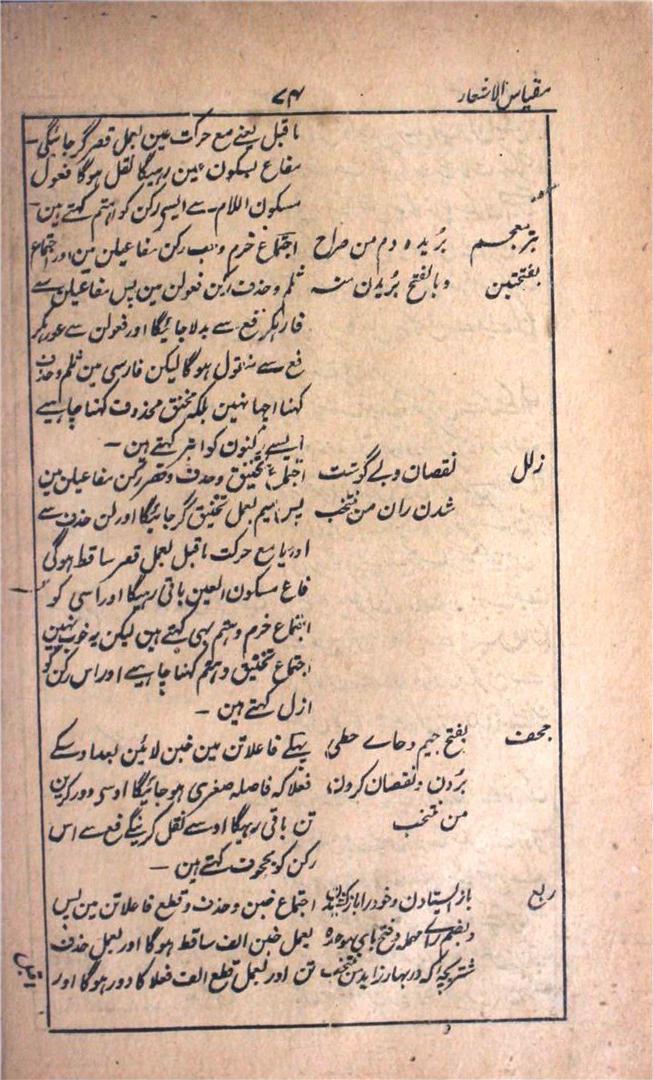 مقیاس الاشعار
۷۴
ماقبل یعنے مع حرکت عین بعمل قصر گر جائیگی۔
مفاع بسکون عین رہیگا نقل ہوگا فعول
بسکون اللام۔ سے ایسے رکن کو اہتم کہتے ہین۔
بتر بمعجم بُریدہ دم من صراح اجتماع خرم و جب رکن مفاعیلن مین اور اجتماع
بفتحتین و بالفتح بُریدن منہ ثلم و حذف رکن فعولن مین پس مفاعیلن سے
فا رہکر فع سے بدلا جائیگا اور فعولن سے عو رہکر
فع سے منقول ہوگا لیکن فارسی مین ثلم و حذف
کہنا اچہا نہین بلکہ مخنق محذوف کہنا چاہیے
ایسے رکنون کو ابتر کہتے ہین۔
زلل نقصان و بے گوشت اجتماع تخنیق و حذف و قصر رکن مفاعیلن مین
شدن ران من منتخب پس میم بعمل تخنیق گر جائیگا اور لن حذف سے
اور یا مع حرکت ماقبل بعمل قصر ساقط ہوگی
فاع بسکون العین باقی رہیگا اور اسی کو
اجتماع خرم و ہتم بہی کہتے ہین لیکن یہ خوب نہین
اجتماع تخنیق و ہتم کہنا چاہیے اور اس رکن کو
ازل کہتے ہین۔
جحف بفتح جیم و حاے حطی پہلے فاعلاتن مین خبن لائین بعد اوسکے
بُردن و نقصان کردن فعلا کہ فاصلہ صغری ہو جائیگا اوسی دور کرین
من منتخب تن باقی رہیگا اوسے نقل کرینگے فع سے اس
رکن کو مجحوف کہتے ہین۔
ربع باز ایستادن و خود را باز اجتماع خبن و حذف و قطع فاعلاتن مین پس
و بضم راے مہملہ و فتح باے موحدہ بعمل خبن الف ساقط ہوگا اور بعمل حذف
شتر بچہ کہ در بہار زاید من منتخب تن اور بعمل قطع الف فعلا کا دور ہوگا اور